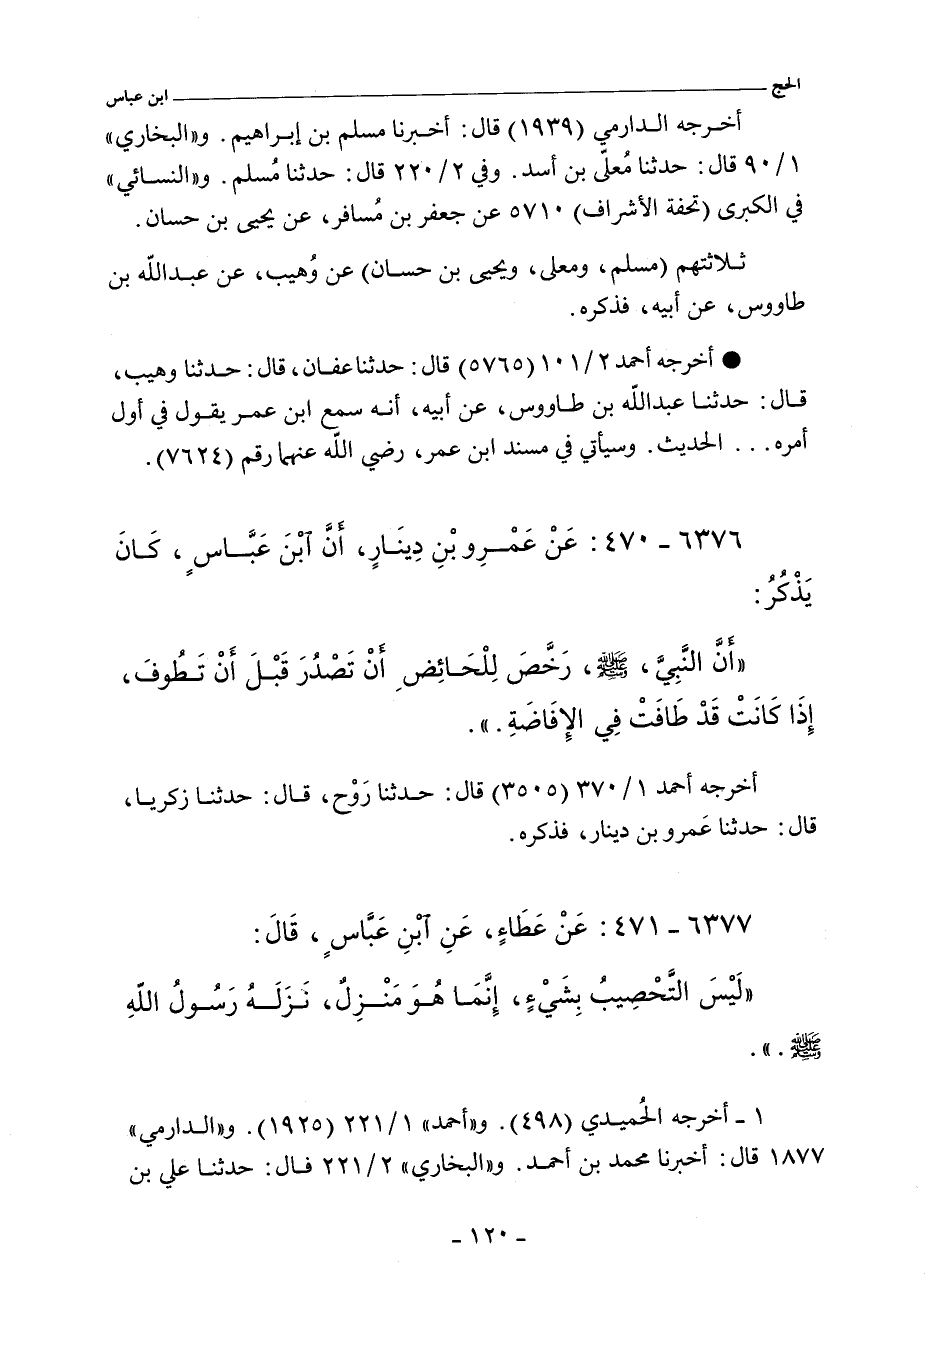 الحج ابن عباس
أخرجه الدارمي (١٩٣٩) قال: أخبرنا مسلم بن إبراهيم. و«البخاري»
٩٠/١ قال: حدثنا مُعلّى بن أسد. وفي ٢٢٠/٢ قال: حدثنا مُسلم. و«النسائي»
في الكبرى (تحفة الأشراف) ٥٧١٠ عن جعفر بن مُسافر، عن يحيى بن حسان.
ثلاثتهم (مسلم، ومعلى، ويحيى بن حسان) عن وُهيب، عن عبدالله بن
طاووس، عن أبيه، فذكره.
● أخرجه أحمد ١٠١/٢ (٥٧٦٥) قال: حدثنا عفان، قال: حدثنا وهيب،
قال: حدثنا عبدالله بن طاووس، عن أبيه، أنه سمع ابن عمر يقول في أول
أمره... الحديث. وسيأتي في مسند ابن عمر، رضي الله عنهما رقم (٧٦٢٤).
٦٣٧٦ - ٤٧٠: عَنْ عَمْرِو بْنِ دِينَارٍ، أَنَّ ٱبْنَ عَبَّاسٍ، كَانَ
يَذْكُرُ:
«أَنَّ النَّبِيَّ، ﷺ، رَخَّصَ لِلْحَائِضِ أَنْ تَصْدُرَ قَبْلَ أَنْ تَطُوفَ،
إِذَا كَانَتْ قَدْ طَافَتْ فِي الإِفَاضَةِ.».
أخرجه أحمد ٣٧٠/١ (٣٥٠٥) قال: حدثنا رَوْح، قال: حدثنا زكريا،
قال: حدثنا عَمرو بن دينار، فذكره.
٦٣٧٧ - ٤٧١: عَنْ عَطَاءٍ، عَنِ ٱبْنِ عَبَّاسٍ، قَالَ:
«لَيْسَ التَّحْصِيبُ بِشَيْءٍ، إِنَّمَا هُوَ مَنْزِلٌ، نَزَلَهُ رَسُولُ اللّهِ
ﷺ.».
١ - أخرجه الحُميدي (٤٩٨). و«أحمد» ٢٢١/١ (١٩٢٥). و«الدارمي»
١٨٧٧ قال: أخبرنا محمد بن أحمد. و«البخاري» ٢٢١/٢ قال: حدثنا علي بن
- ١٢٠ -